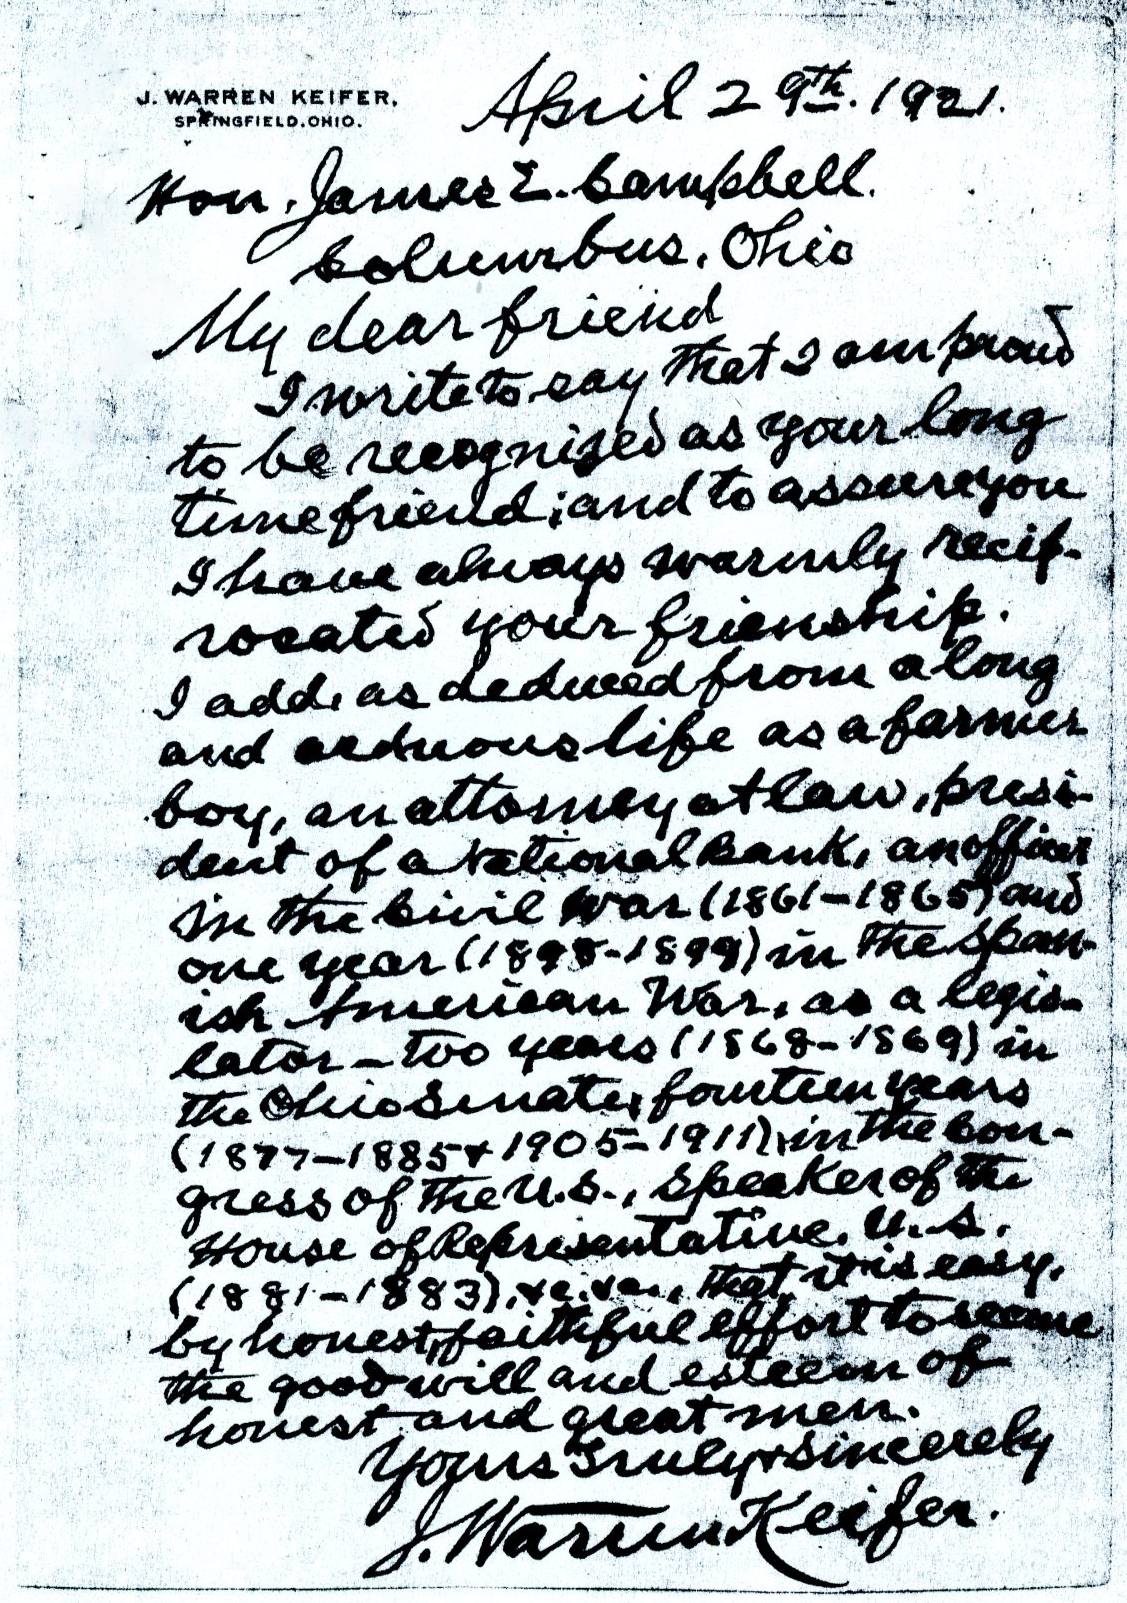 J. WARREN KEIFER,
SPRINGFIELD, OHIO.
April 29th. 1921.
Hon. James E. Campbell.
Columbus, Ohio
My dear friend
I write to say that I am proud
to be recognized as your long
time friend; and to assure you
I have always warmly recip-
rocated your frienship.
I add, as deduced from a long
and arduous life as a farmer
boy, an attorney at law, presi-
dent of a National Bank, an officer
in the Civil War (1861-1865) and
one year (1898-1899) in the Span-
ish American War, as a legis-
lator - two years (1868-1869) in
the Ohio Senate, fourteen years
(1877-1885 & 1905-1911), in the Con-
gress of the U.S., Speaker of the
House of Representative. U.S.
(1881-1883), &c. &c., that it is easy,
by honest, faithful effort to secure
the good will and esteem of
honest and great men.
Yours truly & sincerely
J. Warren Keifer.